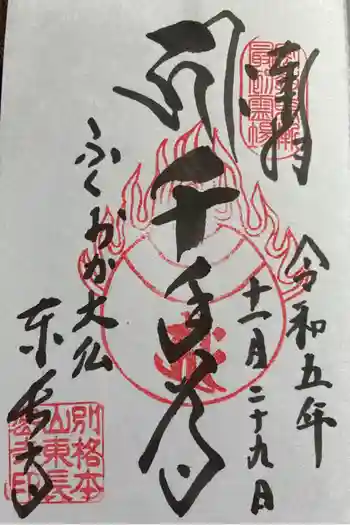 奉拝
最初霊場
千手尊
令和五年
十一月二十九日
ふくおか大仏
東長寺
別格本
山東長
密寺印